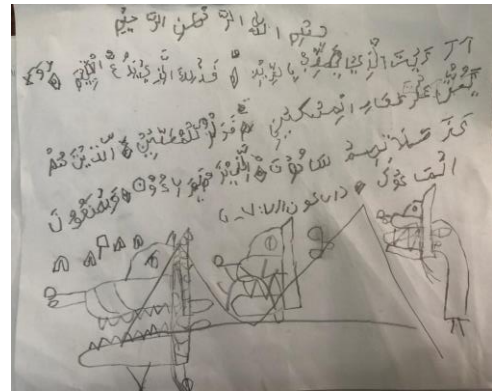 بسم الله الرحمن الرحيم
الذي يكذب بالدين فذلك الذي يدع اليتيم ولا
يحض على طعام المسكين فويل للمصلين الذين هم
عن صلاتهم ساهون الذين هم يراءون ويمنعون